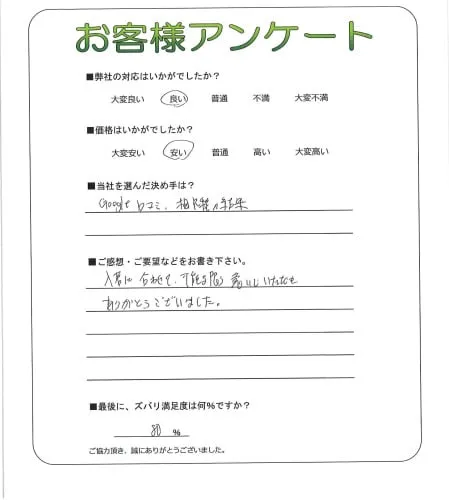 お客様アンケート
■弊社の対応はいかがでしたか？
大変良い 良い 普通 不満 大変不満
■価格はいかがでしたか？
大変安い 安い 普通 高い 大変高い
■当社を選んだ決め手は？
Google 口コミ、相見積の結果
■ご感想・ご要望などをお書き下さい。
入居に合わせて、可能な限り
ありがとうございました。
■最後に、ズバリ満足度は何％ですか？
80 %
ご協力頂き、誠にありがとうございました。